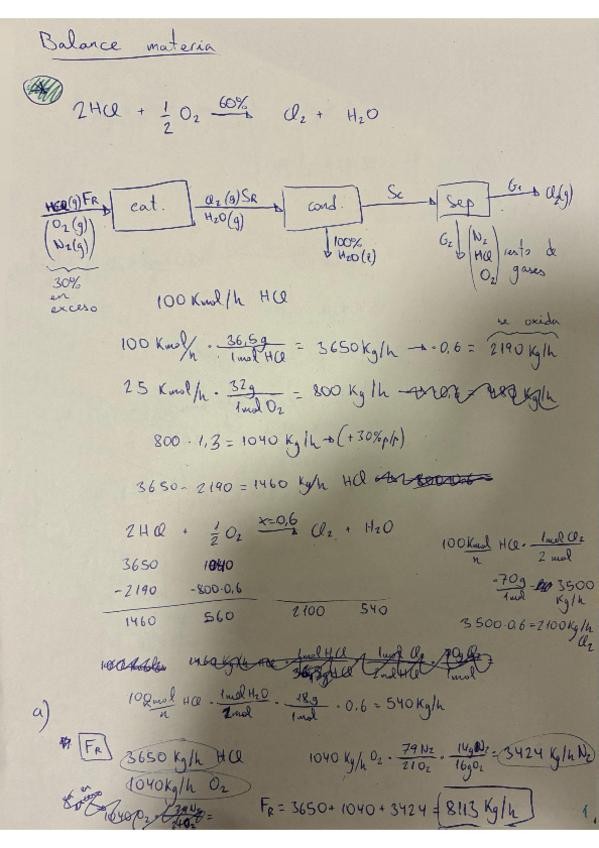 Balance materia
2HCl + 1/2 O₂ —60%→ Cl₂ + H₂O
HCl(g) FR
(O₂(g)
N₂(g))
30%
en
exceso
cat.
Cl₂(g) SR
H₂O(g)
cond.
100%
H₂O(l)
Sc
Sep
G₁
Cl₂(g)
G₂
(N₂
HCl
O₂)
resto de
gases
100 Kmol/h HCl
se oxida
100 Kmol/h · 36,5g/1mol HCl = 3650 Kg/h → · 0,6 = 2190 Kg/h
25 Kmol/h · 32g/1mol O₂ = 800 Kg/h
800 · 1,3 = 1040 Kg/h → (+30% p/p)
3650 - 2190 = 1460 Kg/h HCl
2HCl + 1/2 O₂ —x=0,6→ Cl₂ + H₂O
3650 1040
-2190 -800·0,6
1460 560 2100 540
100 Kmol/h HCl · 1mol Cl₂/2 mol
· 70g/1mol = 3500 Kg/h
3500·0,6 = 2100 Kg/h
Cl₂
100 mol/h HCl · 1mol H₂O/2mol · 18g/1mol · 0,6 = 540 Kg/h
a)
FR
3650 Kg/h HCl
1040 Kg/h O₂
1040 Kg/h O₂ · 79N₂/21O₂ · 14gN₂/16gO₂ = 3424 Kg/h N₂
FR = 3650 + 1040 + 3424 = 8113 Kg/h
1.